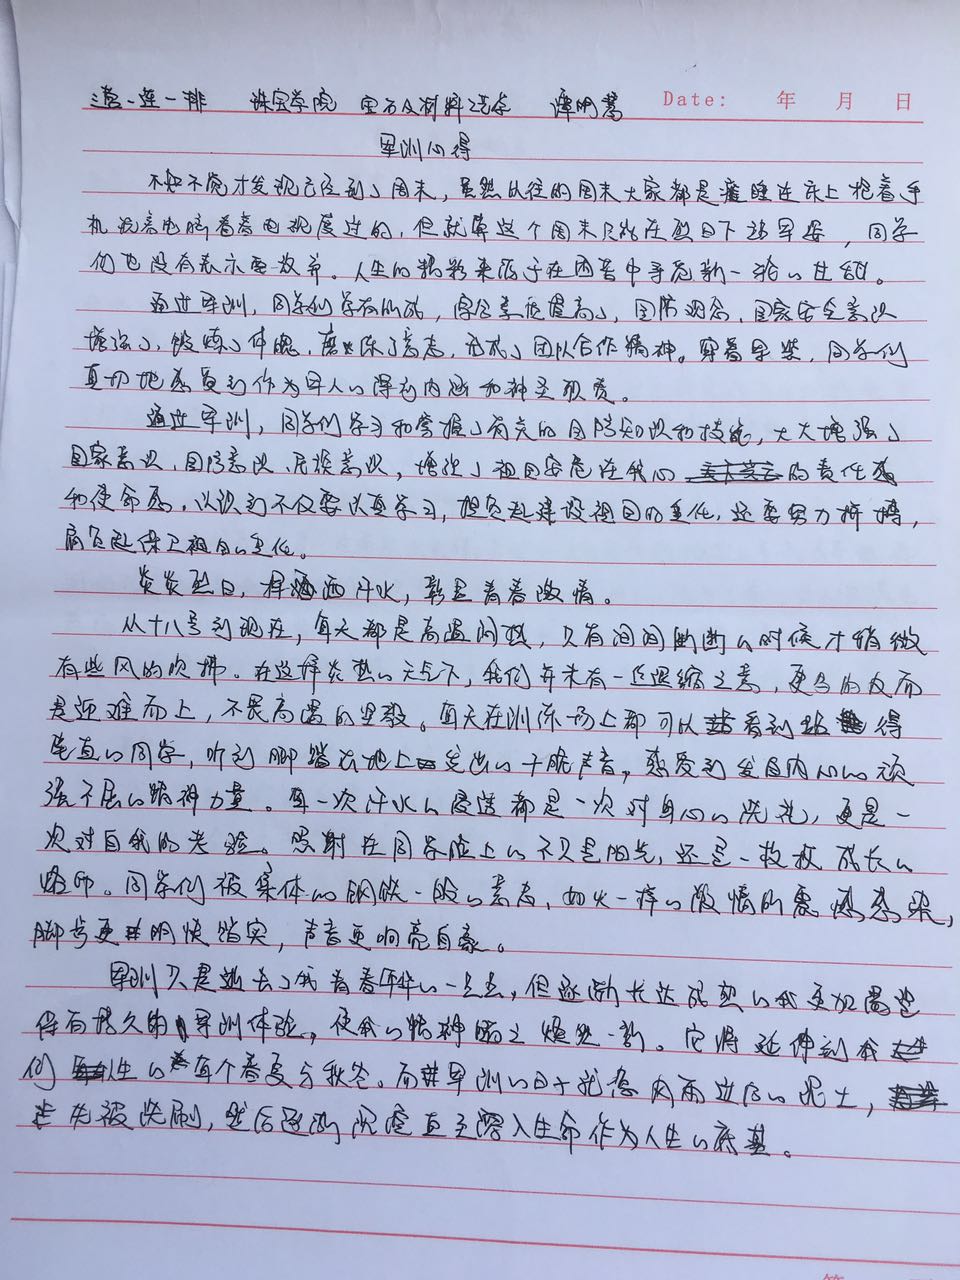 三营一连一排 珠宝学院 宝石及材料工艺学 谭明慧 Date: 年 月 日
军训心得
不知不觉才发现已经到了周末，虽然以往的周末大家都是瘫睡在床上抱着手
机玩着电脑看着电视度过的，但就算这个周末只能在烈日下站军姿，同学
们也没有表示要放弃。人生的精彩来源于在困苦中寻觅新一轮的甘甜。
通过军训，同学们学有所成，综合素质提高了，国防观念，国家安全意识
增强了，锻炼了体魄，磨练了意志，形成了团队合作精神。穿着军装，同学们
真切地感受到作为军人的深色内涵和神圣职责。
通过军训，同学们学习和掌握了有关的国防知识和技能，大大增强了
国家意识，国防意识，民族意识，增强了祖国安危在我心的责任感
和使命感，认识到不仅要认真学习，担负起建设祖国的重任，还要努力拼搏，
肩负起保卫祖国的重任。
炎炎烈日，挥洒汗水，彰显青春激情。
从十八号到现在，每天都是高温闷热，只有间间断断的时候才稍微
有些风的吹拂。在这样炎热的天气下，我们并未有一丝退缩之意，更多的反而
是迎难而上，不畏高温的坚毅。每天在训练场上都可以看到站得
笔直的同学，听到脚踏在地上发出的干脆声音，感受到发自内心的顽
强不屈的精神力量。每一次汗水的浸透都是一次对身心的洗礼，更是一
次对自我的考验。照射在同学脸上的不只是阳光，还是一枚枚成长的
烙印。同学们被集体的钢铁一般的意志，如火一样的激情所感染，
脚步更明快踏实，声音更响亮自豪。
军训只是逝去了我青春年华的一点点，但逐渐长达成熟的我更加需要
得而悠久的军训体验，使我的精神随之焕然一新。它将延伸到我
们人生的每个春夏与秋冬。而军训的日子就像大雨过后的泥土，
先被洗刷，然后逐渐沉淀直至深入生命作为人生的底基。